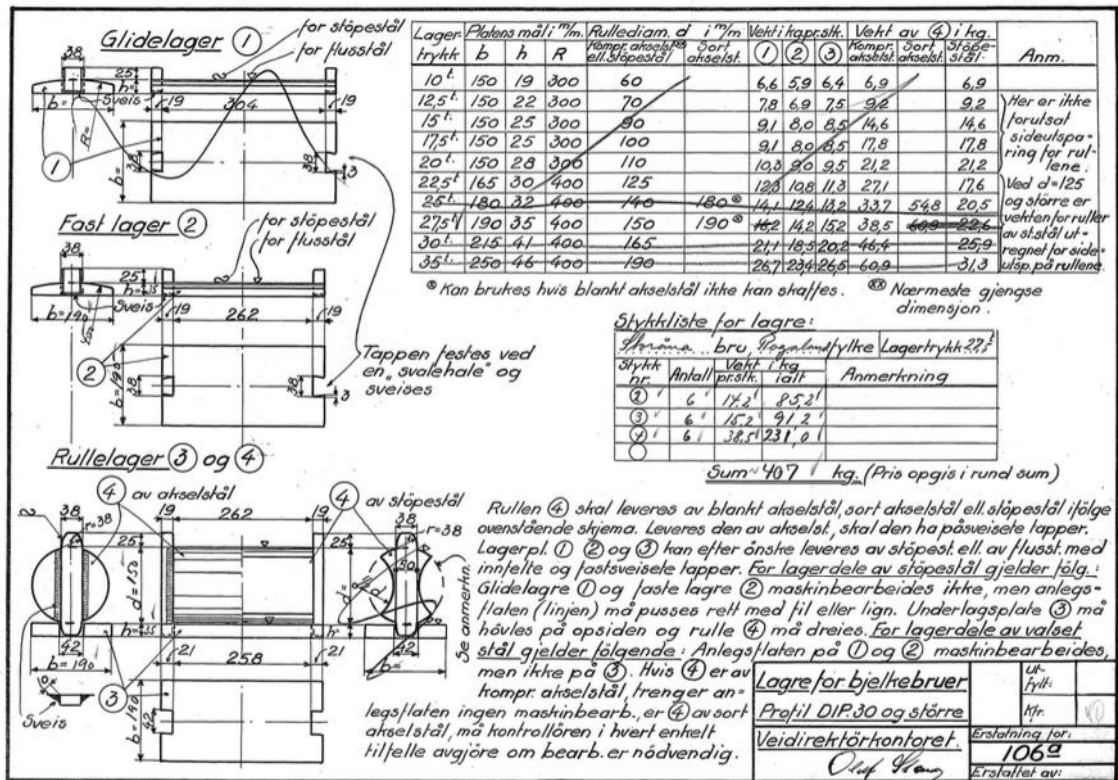 Glidelager ①
for stöpestål
for flusstål
38
25
h=
b=
Sveis
19
304
19
R=
①
b=
38
38
3
Fast lager ②
for stöpestål
for flusstål
38
25
h= 35
b=190
Sveis
19
262
19
②
b=190
38
38
3
Tappen festes ved
en „svalehale" og
sveises
Rullelager ③ og ④
④ av akselstål
④ av stöpestål
38
r=38
25
19
262
19
38
r=38
25
50
d=150
d=
h= 35
h=
42
b=190
21
258
21
42
b=
Se anmerkn.
Sveis
③
b=190
42
Lager-
trykk
Platens mål i m/m
b h R
Rullediam. d i m/m
Kompr. akselst. ell. stöpestål
Sort akselst.
Vekt i kg pr. stk.
① ② ③
Vekt av ④ i kg.
Kompr. akselst.
Sort akselst.
Stöpe-
stål.
Anm.
10 t. 150 19 300 60 6,6 5,9 6,4 6,9 6,9
12,5 t. 150 22 300 70 7,8 6,9 7,5 9,2 9,2
15 t. 150 25 300 90 9,1 8,0 8,5 14,6 14,6
17,5 t. 150 25 300 100 9,1 8,0 8,5 17,8 17,8
20 t. 150 28 300 110 10,3 9,0 9,5 21,2 21,2
22,5 t 165 30 400 125 12,3 10,8 11,3 27,1 17,6
25 t. 180 32 400 140 180 ⊗ 14,1 12,4 13,2 33,7 54,8 20,5
27,5 t 190 35 400 150 190 ⊗ 16,2 14,2 15,2 38,5 60,9 22,6
30 t. 215 41 400 165 21,1 18,5 20,2 46,4 25,9
35 t. 250 46 400 190 26,7 23,4 26,5 60,9 31,3
Her er ikke
forutsat
sideutspa-
ring for rul-
lene.
Ved d=125
og större er
vekten for ruller
av st.stål ut-
regnet for side-
utsp. på rullene.
⊗ Kan brukes hvis blankt akselstål ikke kan skaffes.
⊗⊗ Nærmeste gjengse
dimensjon.
Stykkliste for lagre:
Storåna bru, Rogaland fylke Lagertrykk 27,5 t
Stykk
nr.
Antall
Vekt i kg
pr. stk. ialt
Anmerkning
② 6 14,2 85,2
③ 6 15,2 91,2
④ 6 38,5 231,0
Sum ~ 407 kg. (Pris opgis i rund sum)
Rullen ④ skal leveres av blankt akselstål, sort akselstål ell. stöpestål ifölge
ovenstående skjema. Leveres den av akselst., skal den ha påsveisete tapper.
Lagerpl. ① ② og ③ kan efter önske leveres av stöpest. ell. av flusst. med
innfelte og fastsveisete tapper. For lagerdele av stöpestål gjelder fölg.:
Glidelagre ① og faste lagre ② maskinbearbeides ikke, men anlegs-
flaten (linjen) må pusses rett med fil eller lign. Underlagsplate ③ må
hövles på opsiden og rulle ④ må dreies. For lagerdele av valset
stål gjelder fölgende: Anlegsflaten på ① og ② maskinbearbeides,
men ikke på ③. Hvis ④ er av
kompr. akselstål, trenger an-
legsflaten ingen maskinbearb., er ④ av sort
akselstål, må kontrollören i hvert enkelt
tilfelle avgjöre om bearb. er nödvendig.
Lagre for bjelkebruer
Profil DIP. 30 og större
Veidirektörkontoret.
Ut-
fylt:
Kfr.
Erstatning for:
106a
Erstattet av: